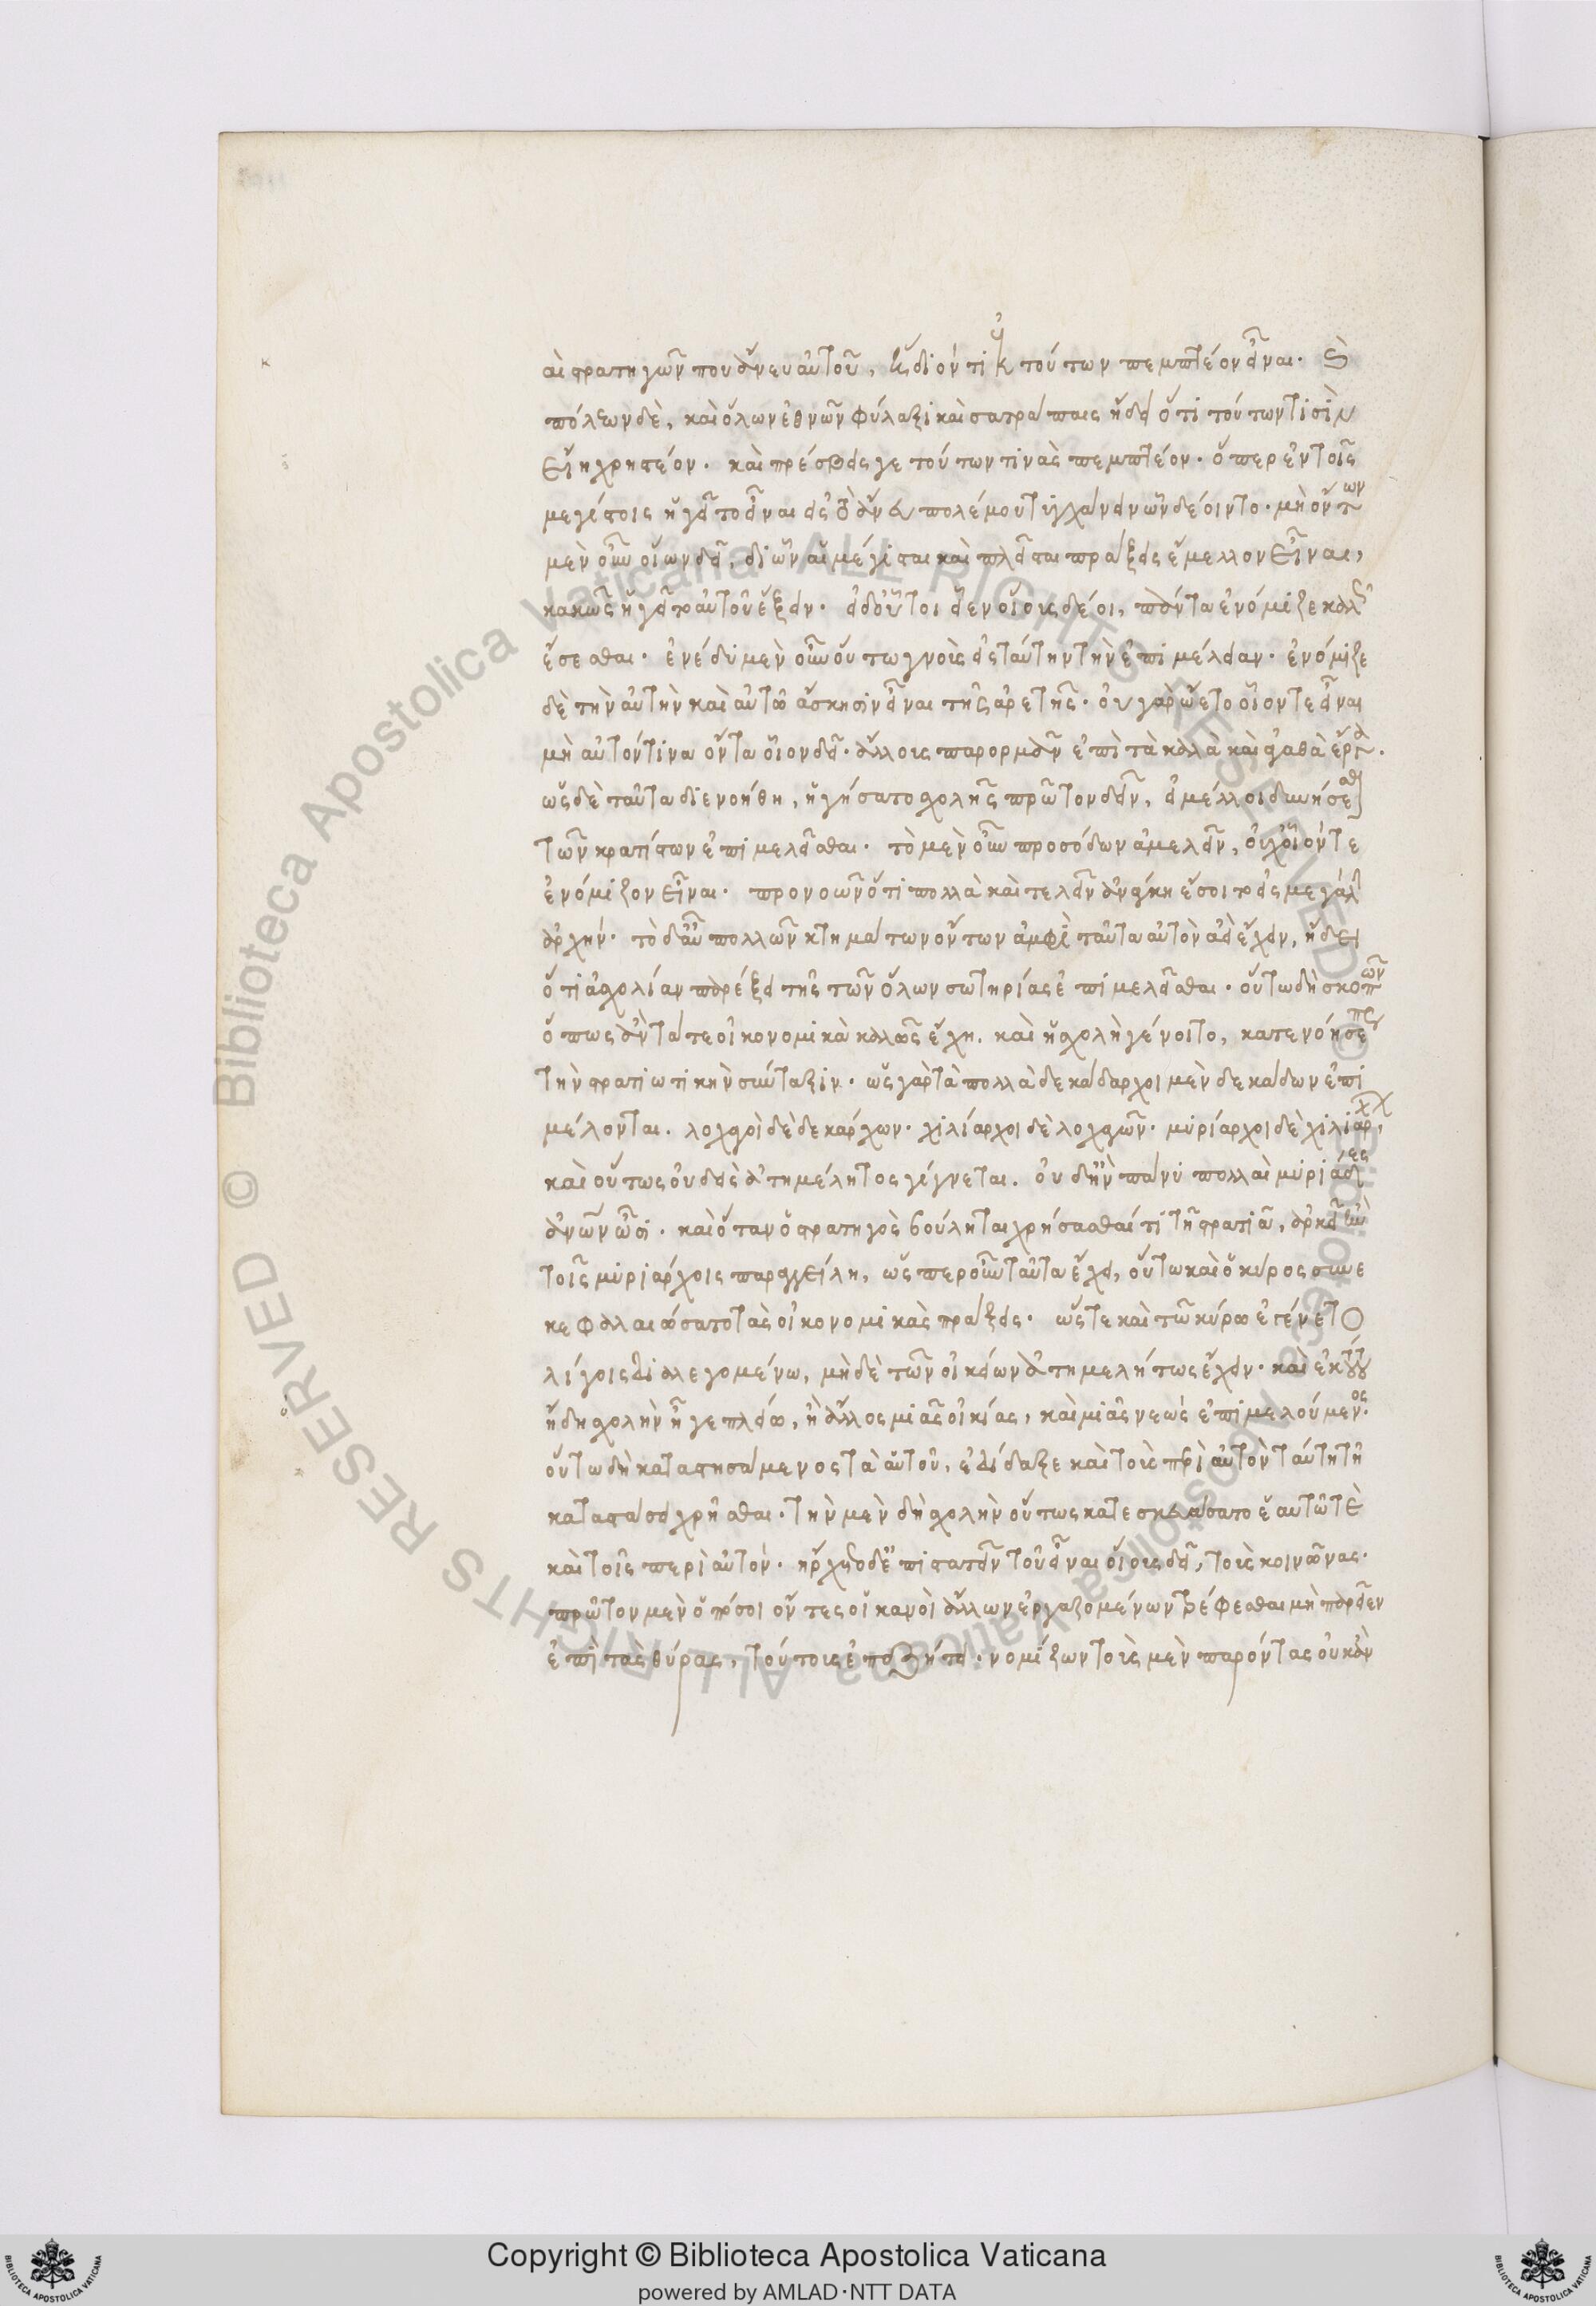 αι στρατηγῶν που ἄνευ αὐτοῦ, ᾔδει ὅτι ἐκ τούτων πεμπτέον εἶναι. καὶ
πόλεων δὲ, καὶ ὅλων ἐθνῶν φύλαξι καὶ σατράπαις ᾔδει ὅτι τούτων τισὶν
εἴη χρηστέον. καὶ πρέσβεις γε τούτων τινὰς πεμπτέον. ὅπερ ἐν τοῖς
μεγίστοις ἡγεῖτο εἶναι εἰς τὸ ἄνευ πολέμου τυγχάνειν ὧν δέοιντο. μὴ ὄντων
μὲν οὖν οἵων δεῖ, δι' ὧν αἱ μέγισται καὶ πλεῖσται πράξεις ἔμελλον εἶναι,
κακῶς ἡγεῖτο αὐτοῦ ἕξειν. εἰ δ' οὗτοι εἶεν οἵους δέοι, πάντα ἐνόμιζε καλῶς
ἔσεσθαι. ἐνέδυ μὲν οὖν οὕτω γνοὺς εἰς ταύτην τὴν ἐπιμέλειαν. ἐνόμιζε
δὲ τὴν αὐτὴν καὶ αὐτῷ ἄσκησιν εἶναι τῆς ἀρετῆς. οὐ γὰρ ᾤετο οἷόν τε εἶναι
μὴ αὐτόν τινα ὄντα οἷον δεῖ. ἄλλους παρορμᾶν ἐπὶ τὰ καλὰ καὶ ἀγαθὰ ἔργα.
ὡς δὲ ταῦτα διενοήθη, ἡγήσατο σχολῆς πρῶτον δεῖν, εἰ μέλλοι δυνήσεσθαι
τῶν κρατίστων ἐπιμελεῖσθαι. τὸ μὲν οὖν προσόδων ἀμελεῖν, οὐχ οἷόν τε
ἐνόμιζον εἶναι. προνοῶν ὅτι πολλὰ καὶ τελεῖν ἀνάγκη ἔσοιτο εἰς μεγάλην
ἀρχήν. τὸ δ' αὖ πολλῶν κτημάτων ὄντων ἀμφὶ ταῦτα αὐτὸν ἀεὶ ἔχειν, ᾔδει
ὅτι ἀσχολίαν παρέξει τῆς τῶν ὅλων σωτηρίας ἐπιμελεῖσθαι. οὕτω δὴ σκοπῶν
ὅπως ἂν τά τε οἰκονομικὰ καλῶς ἔχῃ. καὶ ἡ σχολὴ γένοιτο, κατενόησέ πως
τὴν στρατιωτικὴν σύνταξιν. ὡς γὰρ τὰ πολλὰ δεκάδαρχοι μὲν δεκάδων ἐπι
μέλονται. λοχαγοὶ δὲ δεκάρχων. χιλίαρχοι δὲ λοχαγῶν. μυρίαρχοι δὲ χιλιάρχων,
καὶ οὕτως οὐδεὶς ἀτημέλητος γίγνεται. οὐδ' ἢν πάνυ πολλαὶ μυριάδες
ἀνθρώπων ὦσι. καὶ ὅταν ὁ στρατηγὸς βούληται χρήσασθαί τι τῇ στρατιᾷ, ἀρκεῖ ἐὰν
τοῖς μυριάρχοις παραγγείλῃ, ὥσπερ οὖν ταῦτα ἔχει, οὕτω καὶ ὁ κῦρος συνε
κεφαλαιώσατο τὰς οἰκονομικὰς πράξεις. ὥστε καὶ τῷ κύρῳ ἐγένετο
λίγοις διαλεγομένῳ, μηδὲν τῶν οἰκείων ἀτημελήτως ἔχειν. καὶ ἐκ τούτου
ἤδη σχολὴν ἦγε πλείω, ἢ ἄλλος μιᾶς οἰκίας, καὶ μιᾶς νεὼς ἐπιμελούμενος.
οὕτω δὴ καταστησάμενος τὰ αὑτοῦ, ἐδίδαξε καὶ τοὺς περὶ αὐτὸν ταύτῃ τῇ
καταστάσει χρῆσθαι. τὴν μὲν δὴ σχολὴν οὕτως κατεσκευάσατο ἑαυτῷ τε
καὶ τοῖς περὶ αὐτόν. ἤρχετο δ' ἐπιστατεῖν τοῦ εἶναι οἵους δεῖ, τοὺς κοινῶνας.
πρῶτον μὲν ὁπόσοι ὄντες ἱκανοὶ ἄλλων ἐργαζομένων τρέφεσθαι μὴ παρεῖεν
ἐπὶ τὰς θύρας, τούτους ἐπεζήτει. νομίζων τοὺς μὲν παρόντας οὐκ ἂν